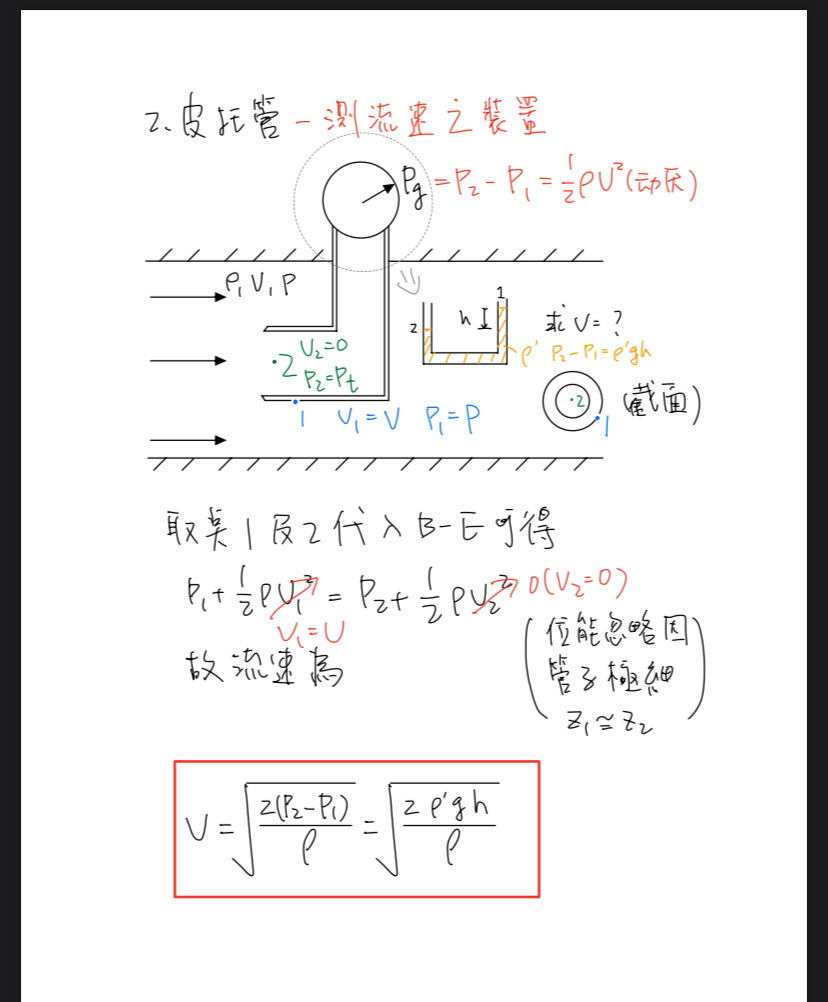 2、皮托管-測流速之裝置
Pg=P₂-P₁=½ρV²(动压)
ρ,V,P
2 V₂=0
P₂=Pt
1 V₁=V P₁=P
2 h 1
ρ'
求V=?
P₂-P₁=ρ'gh
2
1
(截面)
取點1及2代入B-E可得
P₁+½ρV₁²=P₂+½ρV₂² 0(V₂=0)
V₁=V
(位能忽略因
管子極細
Z₁≃Z₂)
故流速為
V=√(2(P₂-P₁)/ρ)=√(2ρ'gh/ρ)